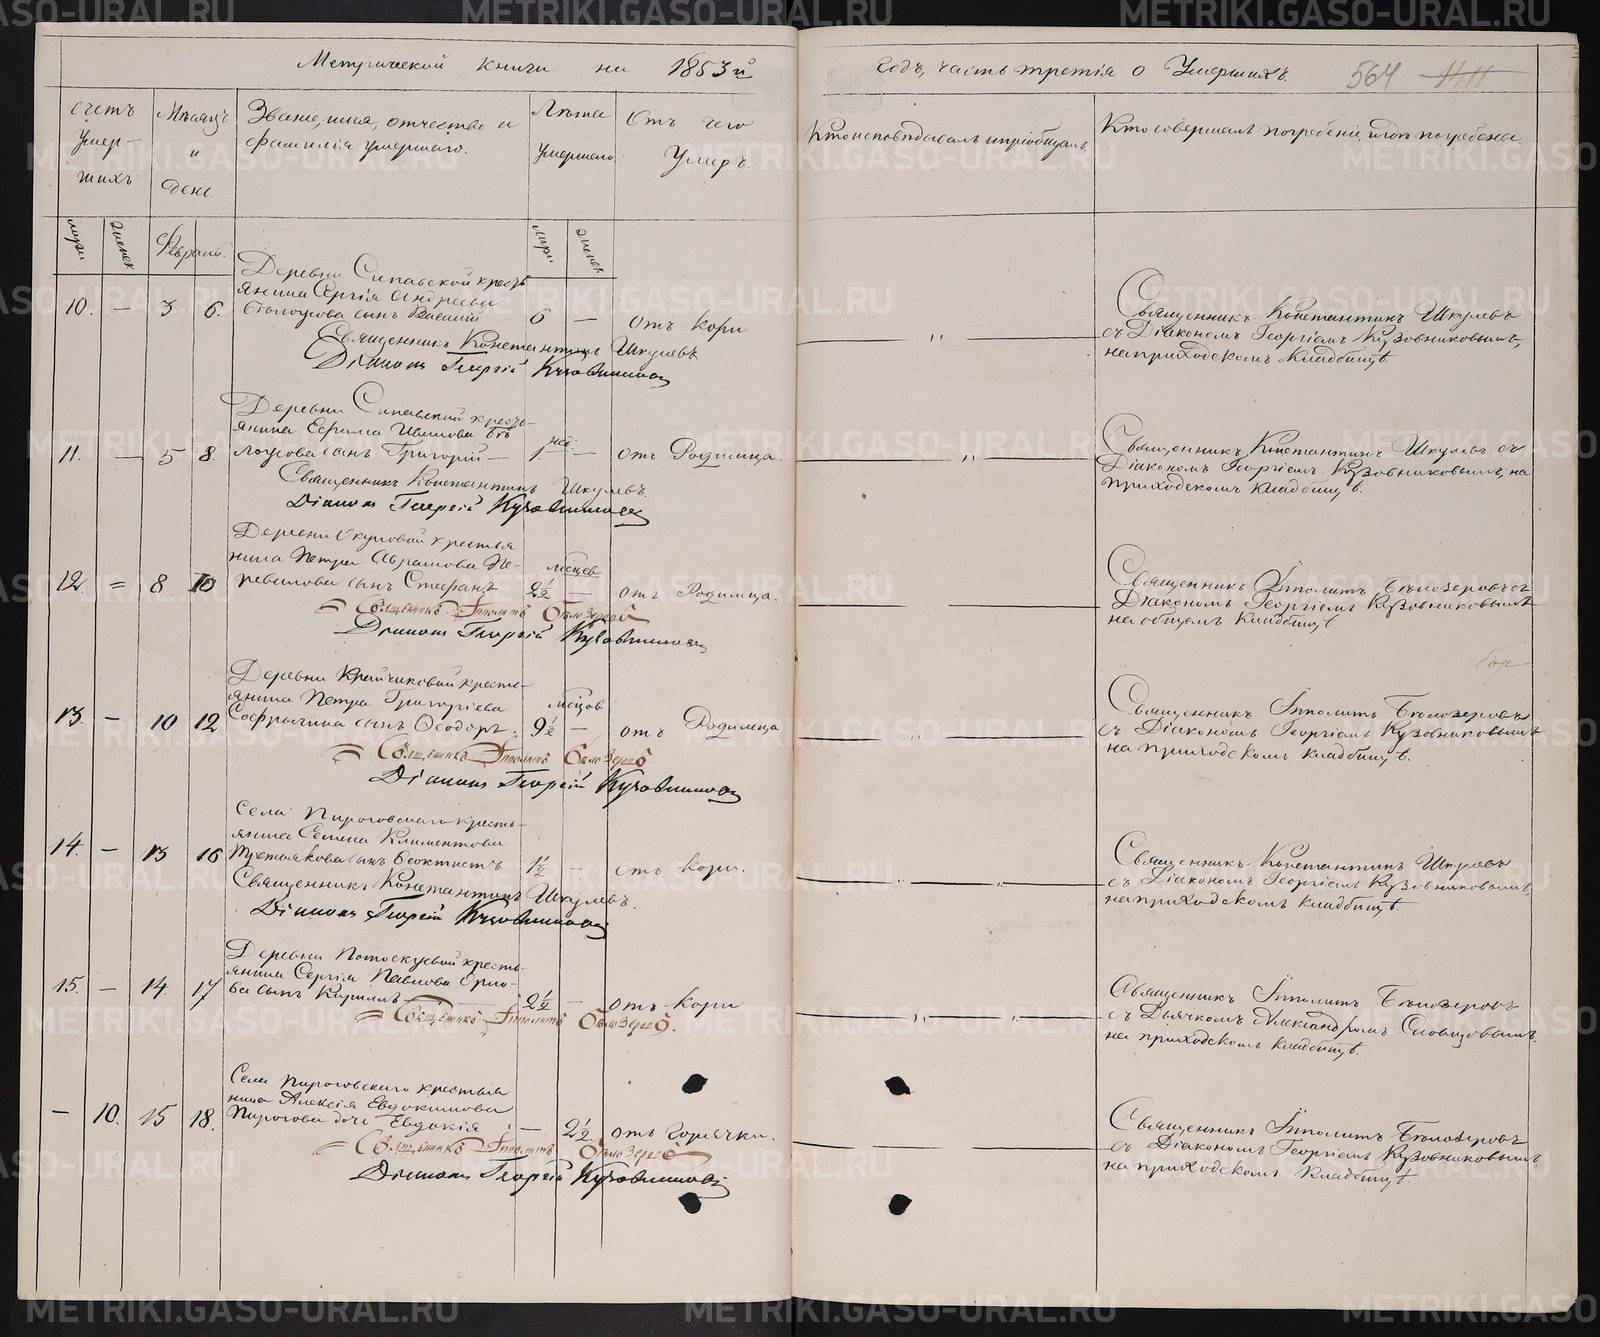 Метрической книги на 1853й
годъ, часть третія о Умершихъ.
564
счетъ умер-шихъ
Мѣсяцъ и день.
Званіе, имя, отчество и фамилія умершаго.
Лѣта умершаго
Отъ чего умеръ.
Кто исповѣдывалъ и пріобщалъ.
Кто совершалъ погребеніе, и гдѣ погребены.
муж. женск.
Февраль.
муж. женск.
Деревни Сипавской кресть-
янина Сергія Андреева
10. — 3 6. сынъ Василій 6 — отъ кори.
Священникъ Константинъ Шкулевъ
Діаконъ Георгій Кузовниковъ
Священникъ Константинъ Шкулевъ
съ Діакономъ Георгіемъ Кузовниковымъ,
на приходскомъ кладбищѣ.
Деревни Сипавской кресть-
янина Ефима Иванова Бѣ-
11. — 5 8. сынъ Григорій — 1 нед: — отъ Родимца.
Священникъ Константинъ Шкулевъ.
Діаконъ Георгій Кузовниковъ
Священникъ Константинъ Шкулевъ съ
Діакономъ Георгіемъ Кузовниковымъ, на
приходскомъ кладбищѣ.
Деревни Окуловой крестья
нина Петра Абрамова Пе-
12. = 8 10 ревалова сынъ Стефанъ 2½ мѣсяц — отъ Родимца.
Священникъ Іпполитъ Бѣлозеровъ
Діаконъ Георгій Кузовниковъ
Священникъ Іпполитъ Бѣлозеровъ съ
Діакономъ Георгіемъ Кузовниковымъ
на общемъ кладбищѣ
Деревни Крайчиковой кресть-
янина Петра Григоріева
13. — 10 12 Софрыгина сынъ Ѳеодоръ 9½ мѣсяцов — отъ Родимца
Священникъ Іпполитъ Бѣлозеровъ
Діаконъ Георгій Кузовниковъ
Священникъ Іпполитъ Бѣлозеровъ
съ Діакономъ Георгіемъ Кузовниковымъ
на приходскомъ кладбищѣ.
Села Пироговскаго кресть-
янина Семена Климентова
14. — 13 16 Третьякова сынъ Ѳеоктистъ 1½ — отъ кори.
Священникъ Константинъ Шкулевъ.
Діаконъ Георгій Кузовниковъ
Священникъ Константинъ Шкулевъ
съ Діакономъ Георгіемъ Кузовниковымъ,
на приходскомъ кладбищѣ.
Деревни Потоскуевой кресть-
янина Сергія Павлова Орло-
15. — 14. 17 ва сынъ Кириллъ 2½ — отъ кори
Священникъ Іпполитъ Бѣлозеровъ.
Священникъ Іпполитъ Бѣлозеровъ
съ Дьячкомъ Александромъ Словцовымъ.
на приходскомъ кладбищѣ.
Села Пироговскаго крестья
нина Алексія Евдокимова
— 10. 15 18. Пирогова дочь Евдокія — 2½ отъ горячки.
Священникъ Іпполитъ Бѣлозеровъ
Діаконъ Георгій Кузовниковъ
Священникъ Іпполитъ Бѣлозеровъ
съ Діакономъ Георгіемъ Кузовниковымъ
на приходскомъ кладбищѣ.
METRIKI.GASO-URAL.RU